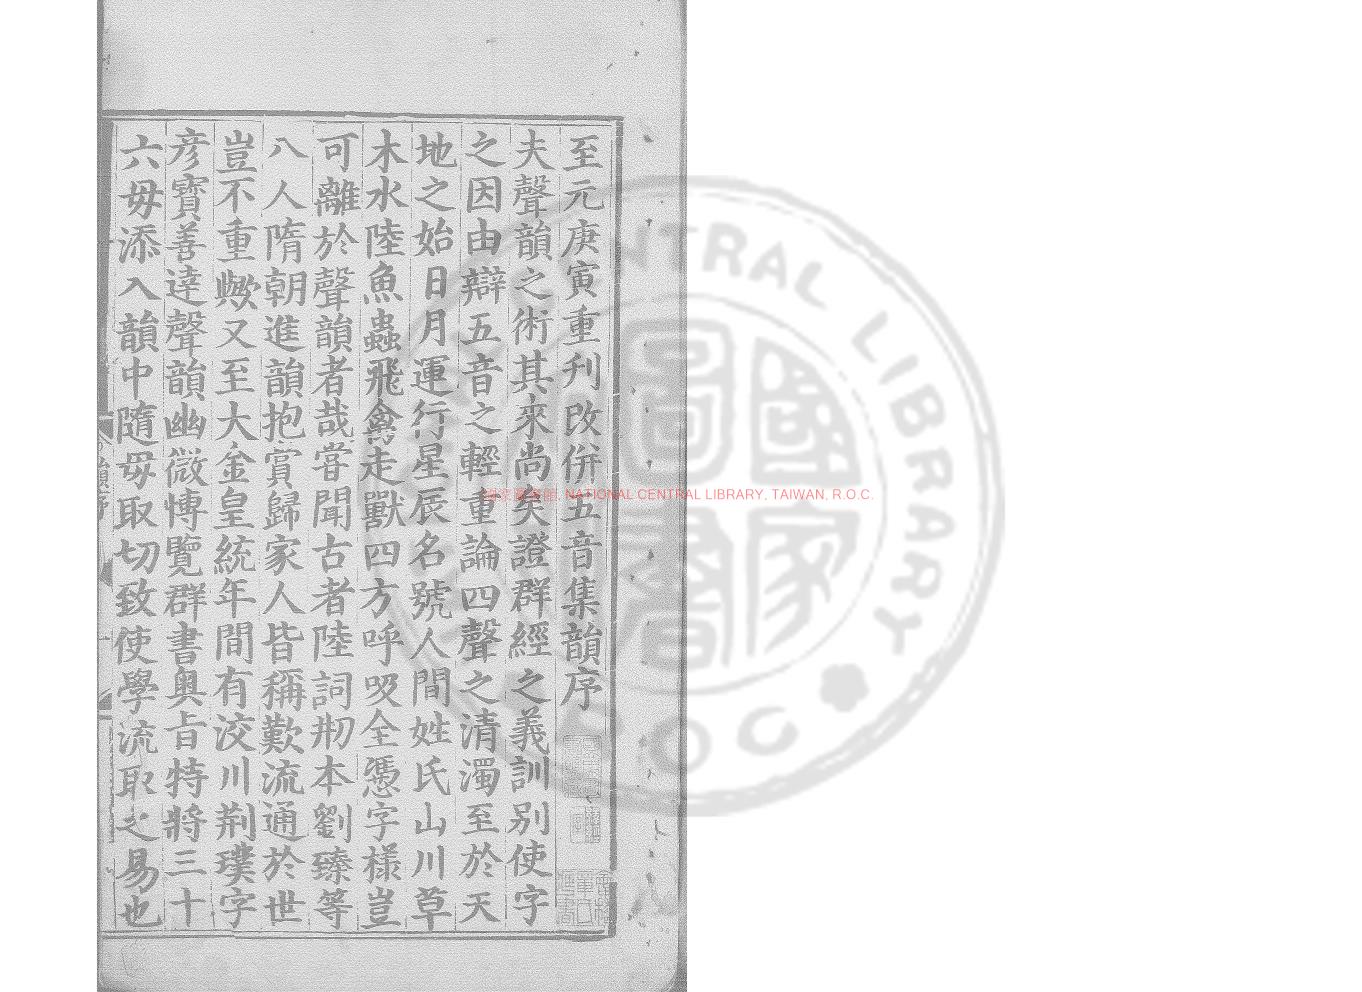 至元庚寅重刋改併五音集韻序
夫聲韻之術其來尚矣證群經之義訓別使字
之因由辯五音之輕重論四聲之清濁至於天
地之始日月運行星辰名號人間姓氏山川草
木水陸魚蟲飛禽走獸四方呼吸全憑字樣豈
可離於聲韻者哉甞聞古者陸詞刱本劉臻等
八人隋朝進韻抱賞歸家人皆稱歎流通於世
豈不重歟又至大金皇統年間有洨川荆璞字
彦寳善達聲韻幽微博覽群書奥旨特將三十
六毋添入韻中隨毋取切致使學流取之易也
國家圖書館, NATIONAL CENTRAL LIBRARY, TAIWAN, R.O.C.
CENTRAL LIBRARY
ROC